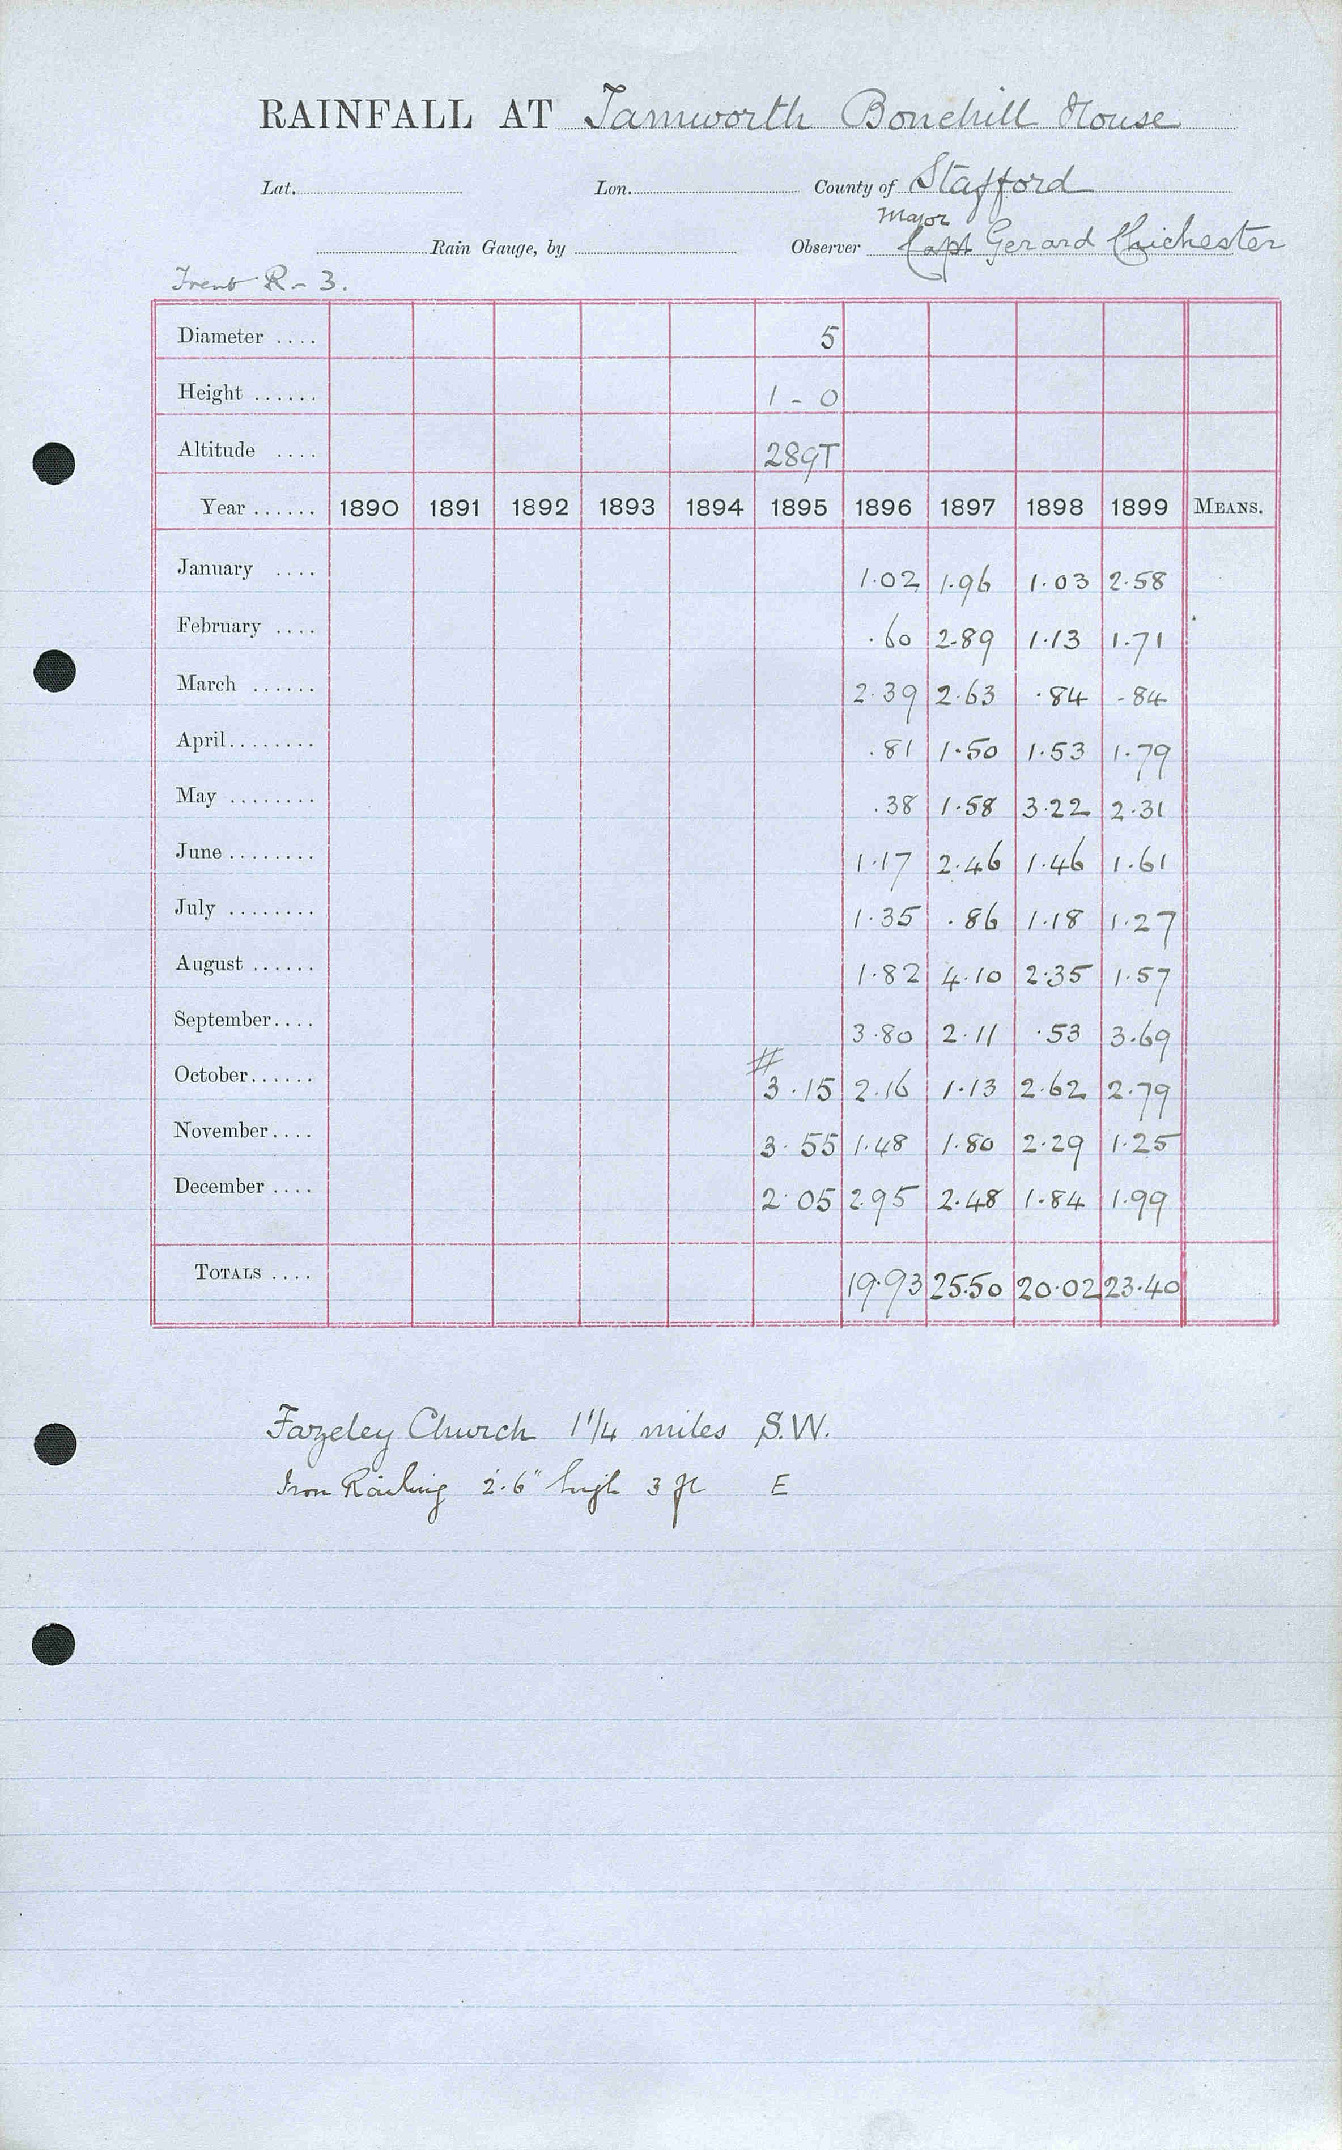 RAINFALL AT Tamworth Bonehill House
Lat. Lon. County of Stafford
Major
Rain Gauge, by Observer Capt Gerard Chichester
Trent R - 3.
Diameter .... 5
Height ...... 1 - 0
Altitude .... 289T
Year ...... 1890 1891 1892 1893 1894 1895 1896 1897 1898 1899 MEANS.
January .... 1.02 1.96 1.03 2.58
February .... .60 2.89 1.13 1.71
March ...... 2.39 2.63 .84 .84
April........ .81 1.50 1.53 1.79
May ........ .38 1.58 3.22 2.31
June ........ 1.17 2.46 1.46 1.61
July ........ 1.35 .86 1.18 1.27
August ...... 1.82 4.10 2.35 1.57
September.... 3.80 2.11 .53 3.69
#
October...... 3.15 2.16 1.13 2.62 2.79
November.... 3.55 1.48 1.80 2.29 1.25
December .... 2.05 2.95 2.48 1.84 1.99
TOTALS .... 19.93 25.50 20.02 23.40
Fazeley Church 1 1/4 miles S.W.
Iron Railing 2'.6" high 3 ft E